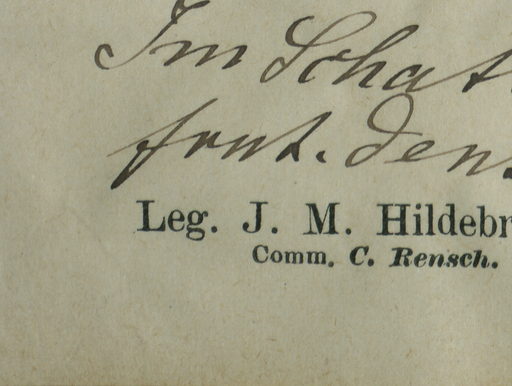 Im Schat
frut. den
Leg. J. M. Hildebr
Comm. C. Rensch.